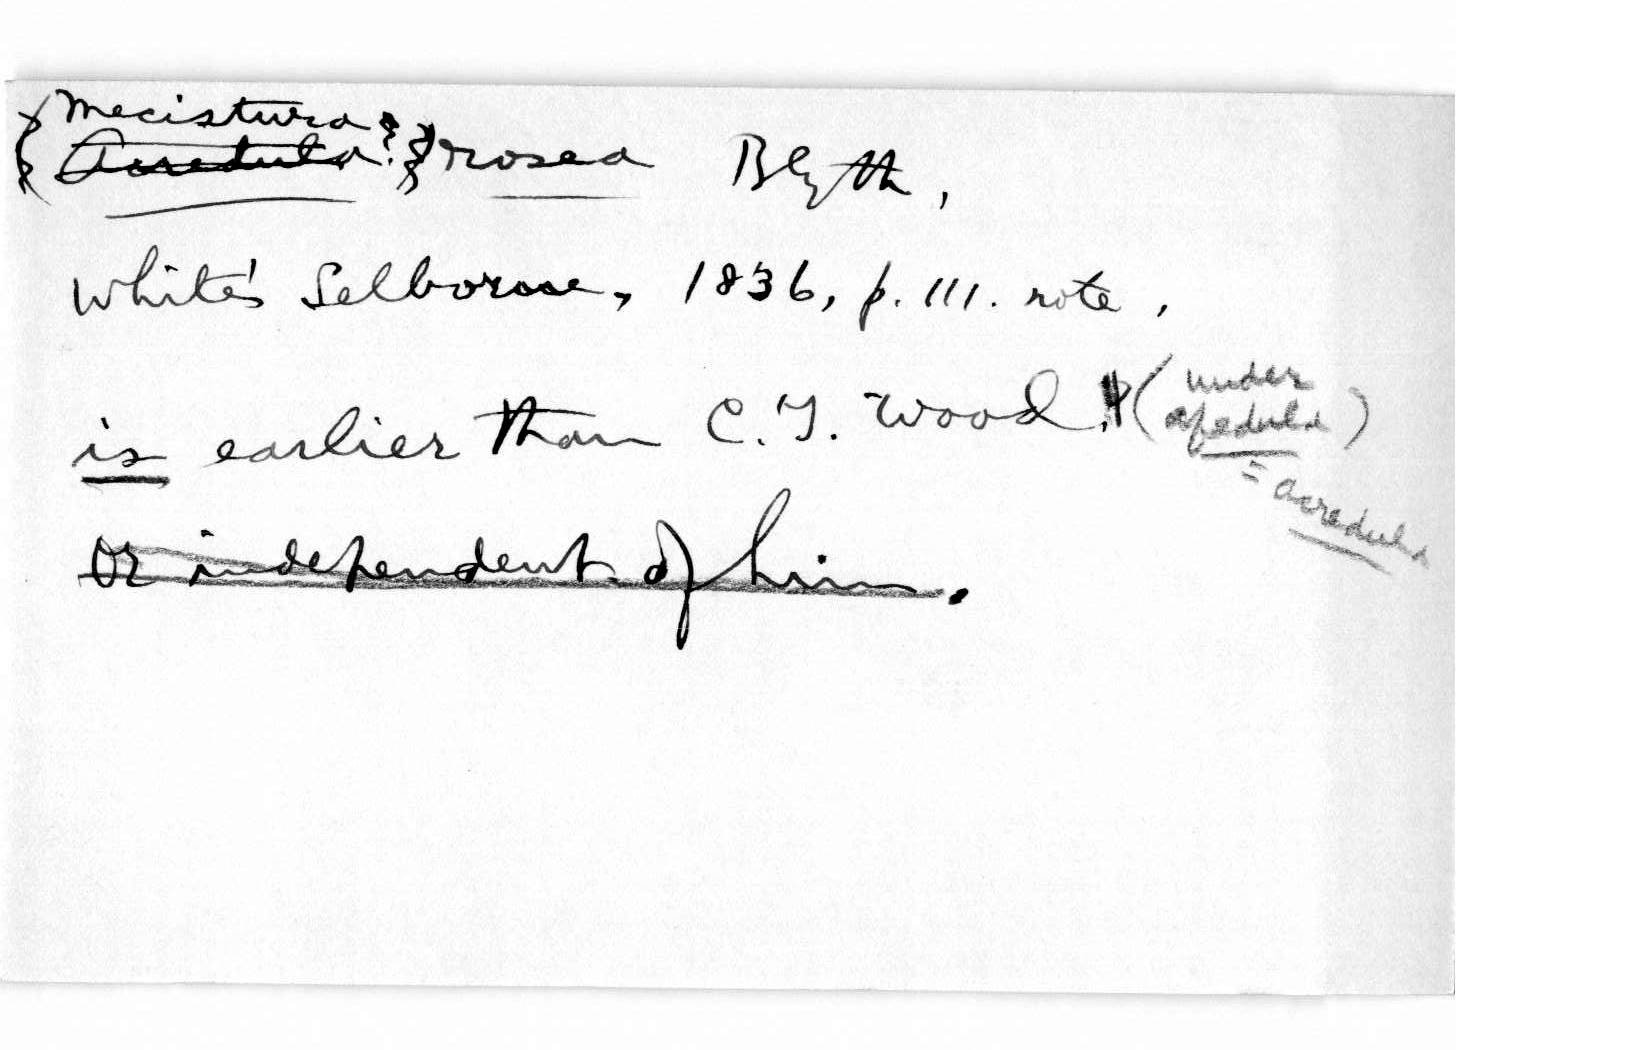 {Mecistura?}
{Acredula?} rosea Blyth,
White's Selborne, 1836, p. 111. note,
is earlier than C.T. Wood, (under
afedula)
= acredula
or independent of him.